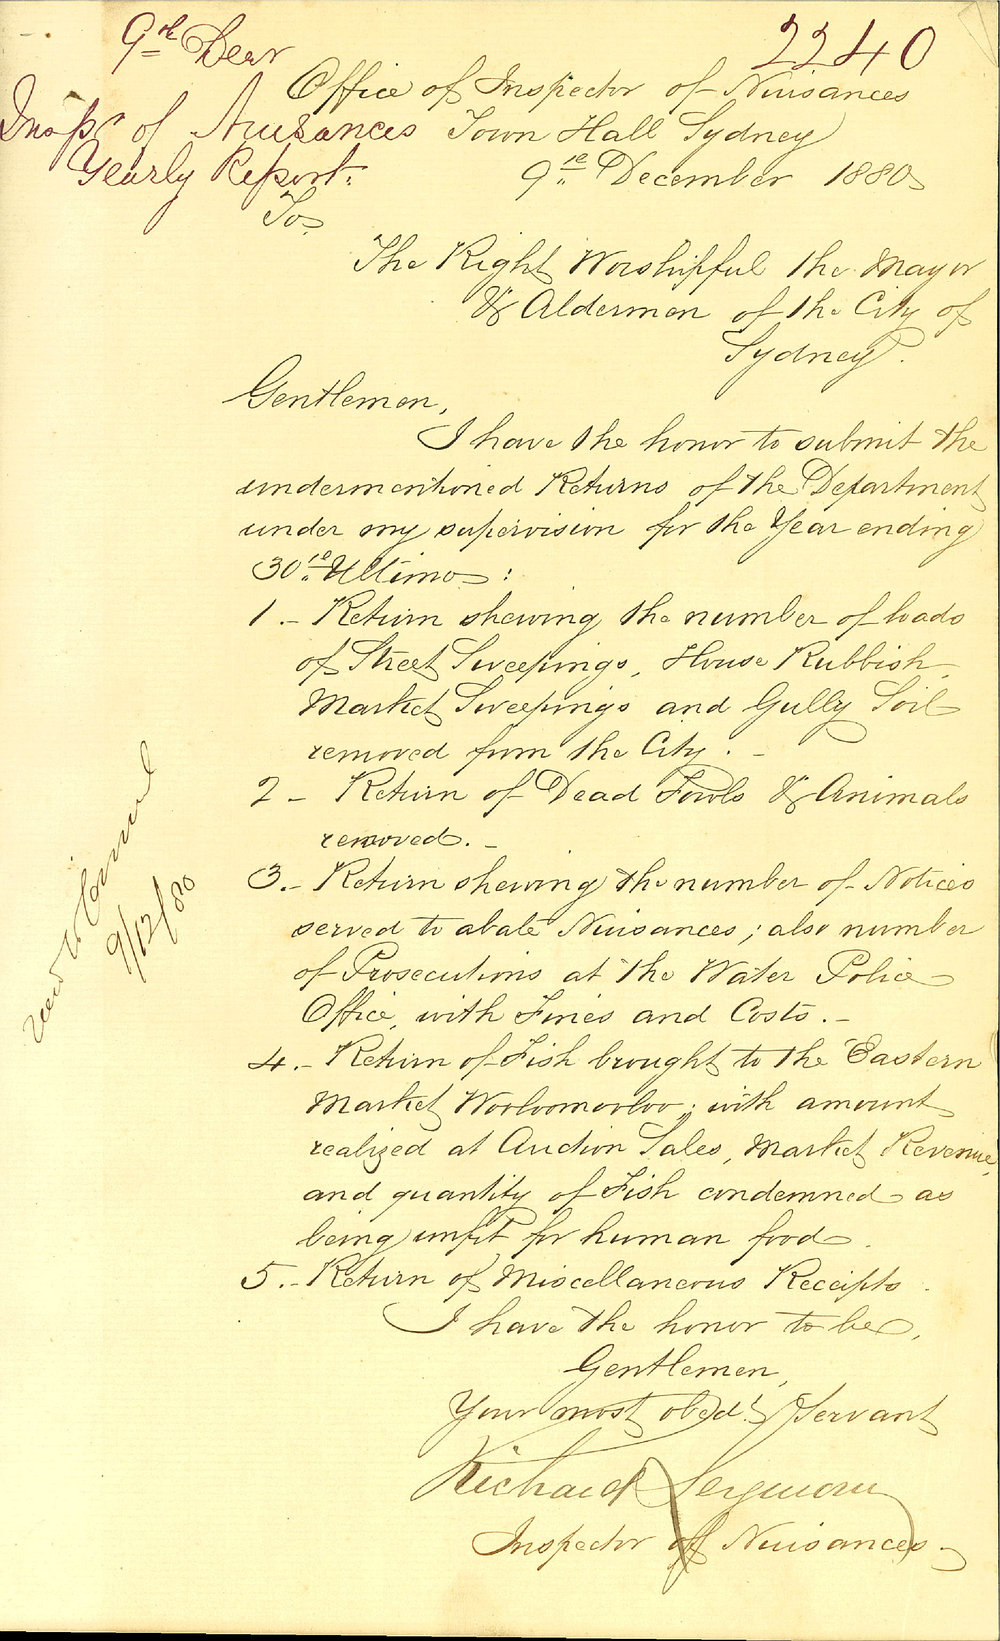 9th Decr
2240
Inspr of Nuisances
Yearly Report.
Office of Inspector of Nuisances
Town Hall Sydney
9th December 1880
To
The Right Worshipful the Mayor
& Aldermen of the City of
Sydney.
Gentlemen,
I have the honor to submit the
undermentioned Returns of the Department
under my supervision for the Year ending
30th Ultimo :
1 .- Return shewing the number of loads
of Street Sweepings, House Rubbish,
Market Sweepings and Gully Soil
removed from the City. -
2 - Return of Dead Fowls & Animals
removed. -
3. - Return shewing the number of Notices
served to abate Nuisances; also number
of Prosecutions at the Water Police
Office, with Fines and Costs. -
4. - Return of Fish brought to the Eastern
Market Wooloomooloo; with amount
realized at Auction Sales, Market Revenue,
and quantity of Fish condemned as
being unfit for human food.
5. - Return of Miscellaneous Receipts.
I have the honor to be,
Gentlemen,
Your most obedt Servant
Richard Seymour
Inspector of Nuisances
Council
9/12/80